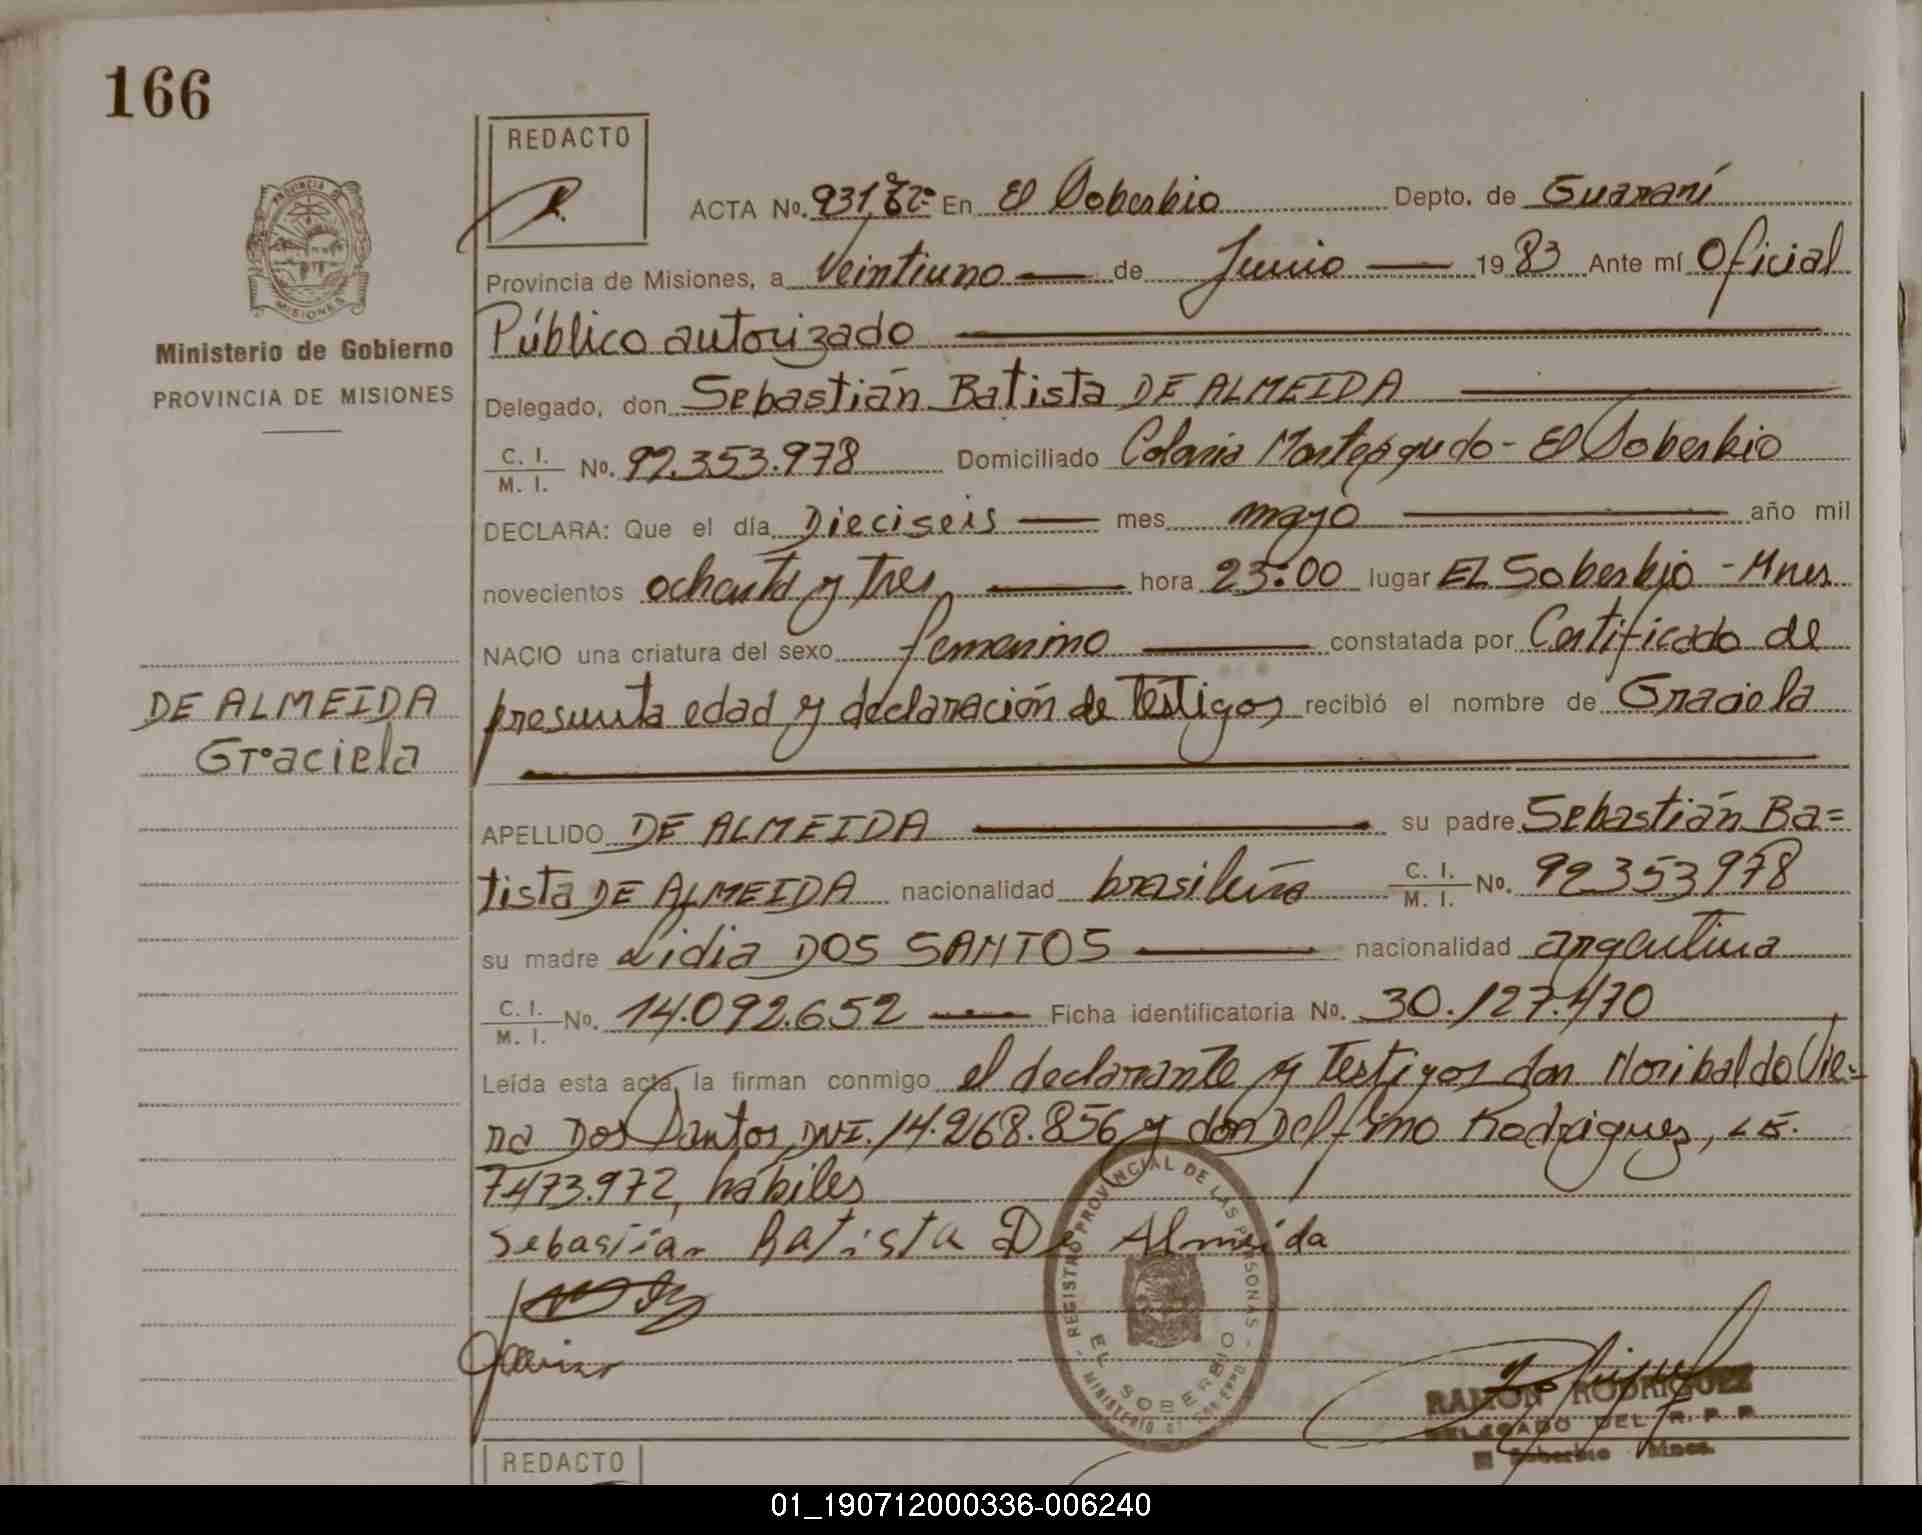 166
REDACTO
ACTA No. 931, En El Soberbio Depto. de Guaraní
Provincia de Misiones, a Veintiuno de Junio 1983 Ante mí Oficial
Público autorizado
Delegado, don Sebastián Batista DE ALMEIDA
C. I. / M. I. No. 92.353.978 Domiciliado Colonia Monteagudo - El Soberbio
DECLARA: Que el día Dieciseis mes mayo año mil
novecientos ochenta y tres hora 23:00 lugar EL Soberbio - Mnes
NACIO una criatura del sexo femenino constatada por Certificado de
presunta edad y declaración de testigos recibió el nombre de Graciela
APELLIDO DE ALMEIDA su padre Sebastián Ba=
tista DE ALMEIDA nacionalidad brasileña C. I. / M. I. No. 92.353.978
su madre Lidia DOS SANTOS nacionalidad argentina
C. I. / M. I. No. 14.092.652 Ficha identificatoria No. 30.127.470
Leída esta acta, la firman conmigo el declarante y testigos don Noribaldo Vie=
ra Dos Santos, DNI. 14.268.856 y don Delfino Rodriguez, LE.
7.473.972, hábiles
Sebastian Batista De Almeida
Ministerio de Gobierno
PROVINCIA DE MISIONES
DE ALMEIDA
Graciela
PROVINCIA DE
MISIONES
REGISTRO PROVINCIAL DE LAS PERSONAS
EL SOBERBIO
MINISTERIO DE GOBIERNO
RAMON RODRIGUEZ
DELEGADO DEL R. P. P.
El Soberbio Mnes.
REDACTO
01_190712000336-006240